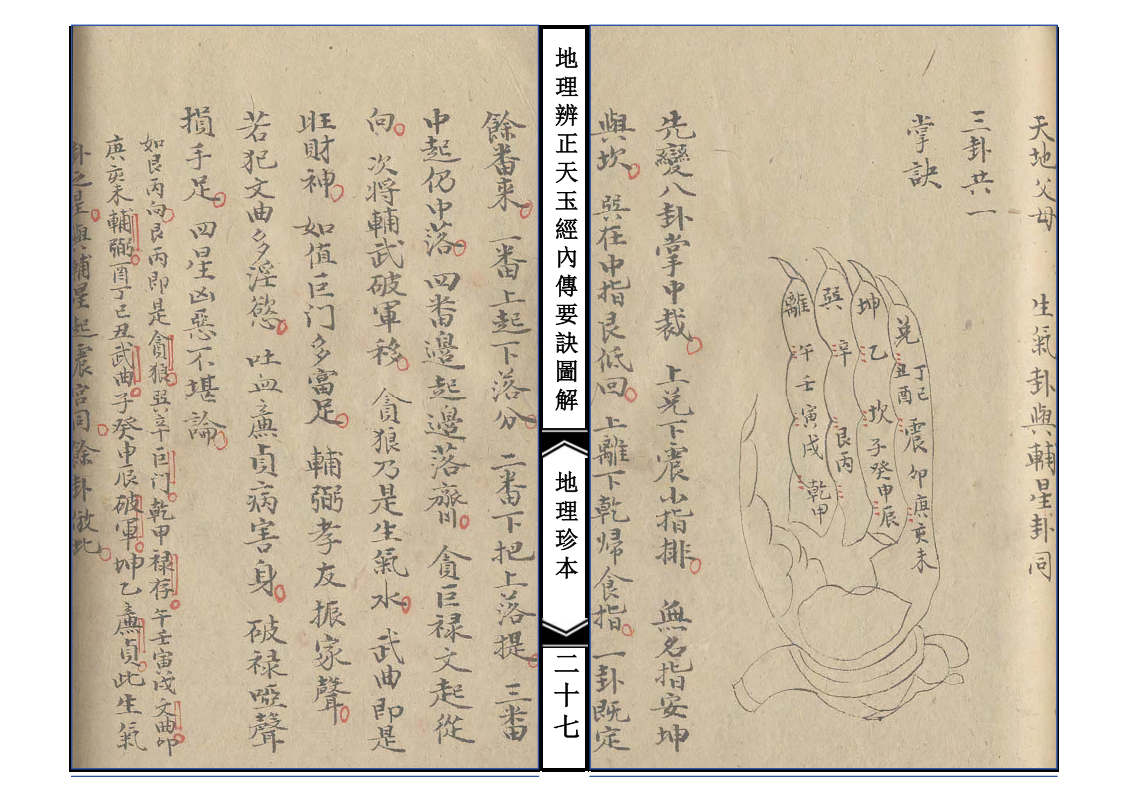 天地父母　生氣卦與輔星卦同
三卦共一
掌訣
離
午壬寅戌
乾甲
巽
辛
艮丙
坤
乙
坎
子癸申辰
兌
丁巳
丑酉
震
卯庚亥未
先變八卦掌中裁　上兌下震小指排　無名指安坤
與坎　巽在中指艮低回　上離下乾歸食指　一卦既定
地理辨正天玉經內傳要訣圖解
地理珍本
二十七
餘番來　一番上起下落分　二番下把上落提　三番
中起仍中落　四番邊起邊落齊　貪巨禄文起從
向　次將輔武破軍移　貪狼乃是生氣水　武曲即是
旺財神　如值巨门多富足　輔弼孝友振家聲
若犯文曲多淫慾　吐血廉貞病害身　破禄啞聲
損手足　四星凶惡不堪論
如艮丙向艮丙即是貪狼巽辛巨门乾甲禄存午壬寅戌文曲卯
庚亥未輔弼酉丁巳丑武曲子癸申辰破軍坤乙廉貞此生氣
卦之星與輔星起震宮同餘卦倣此